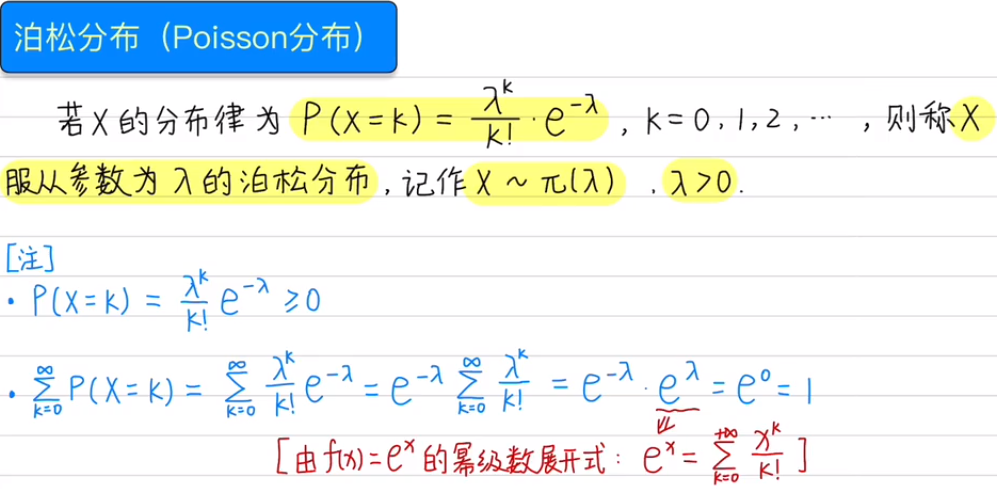 泊松分布（Poisson分布）
若X的分布律为 P(X=k) = λ^k/k! · e^{-λ} , k=0,1,2,… , 则称X
服从参数为λ的泊松分布, 记作 X ~ π(λ) . λ>0.
[注]
· P(X=k) = λ^k/k! e^{-λ} ≥0
· ∑_{k=0}^{∞} P(X=k) = ∑_{k=0}^{∞} λ^k/k! e^{-λ} = e^{-λ} ∑_{k=0}^{∞} λ^k/k! = e^{-λ} · e^{λ} = e^0 = 1
[由f(x)=e^x的幂级数展开式: e^x = ∑_{k=0}^{+∞} x^k/k! ]